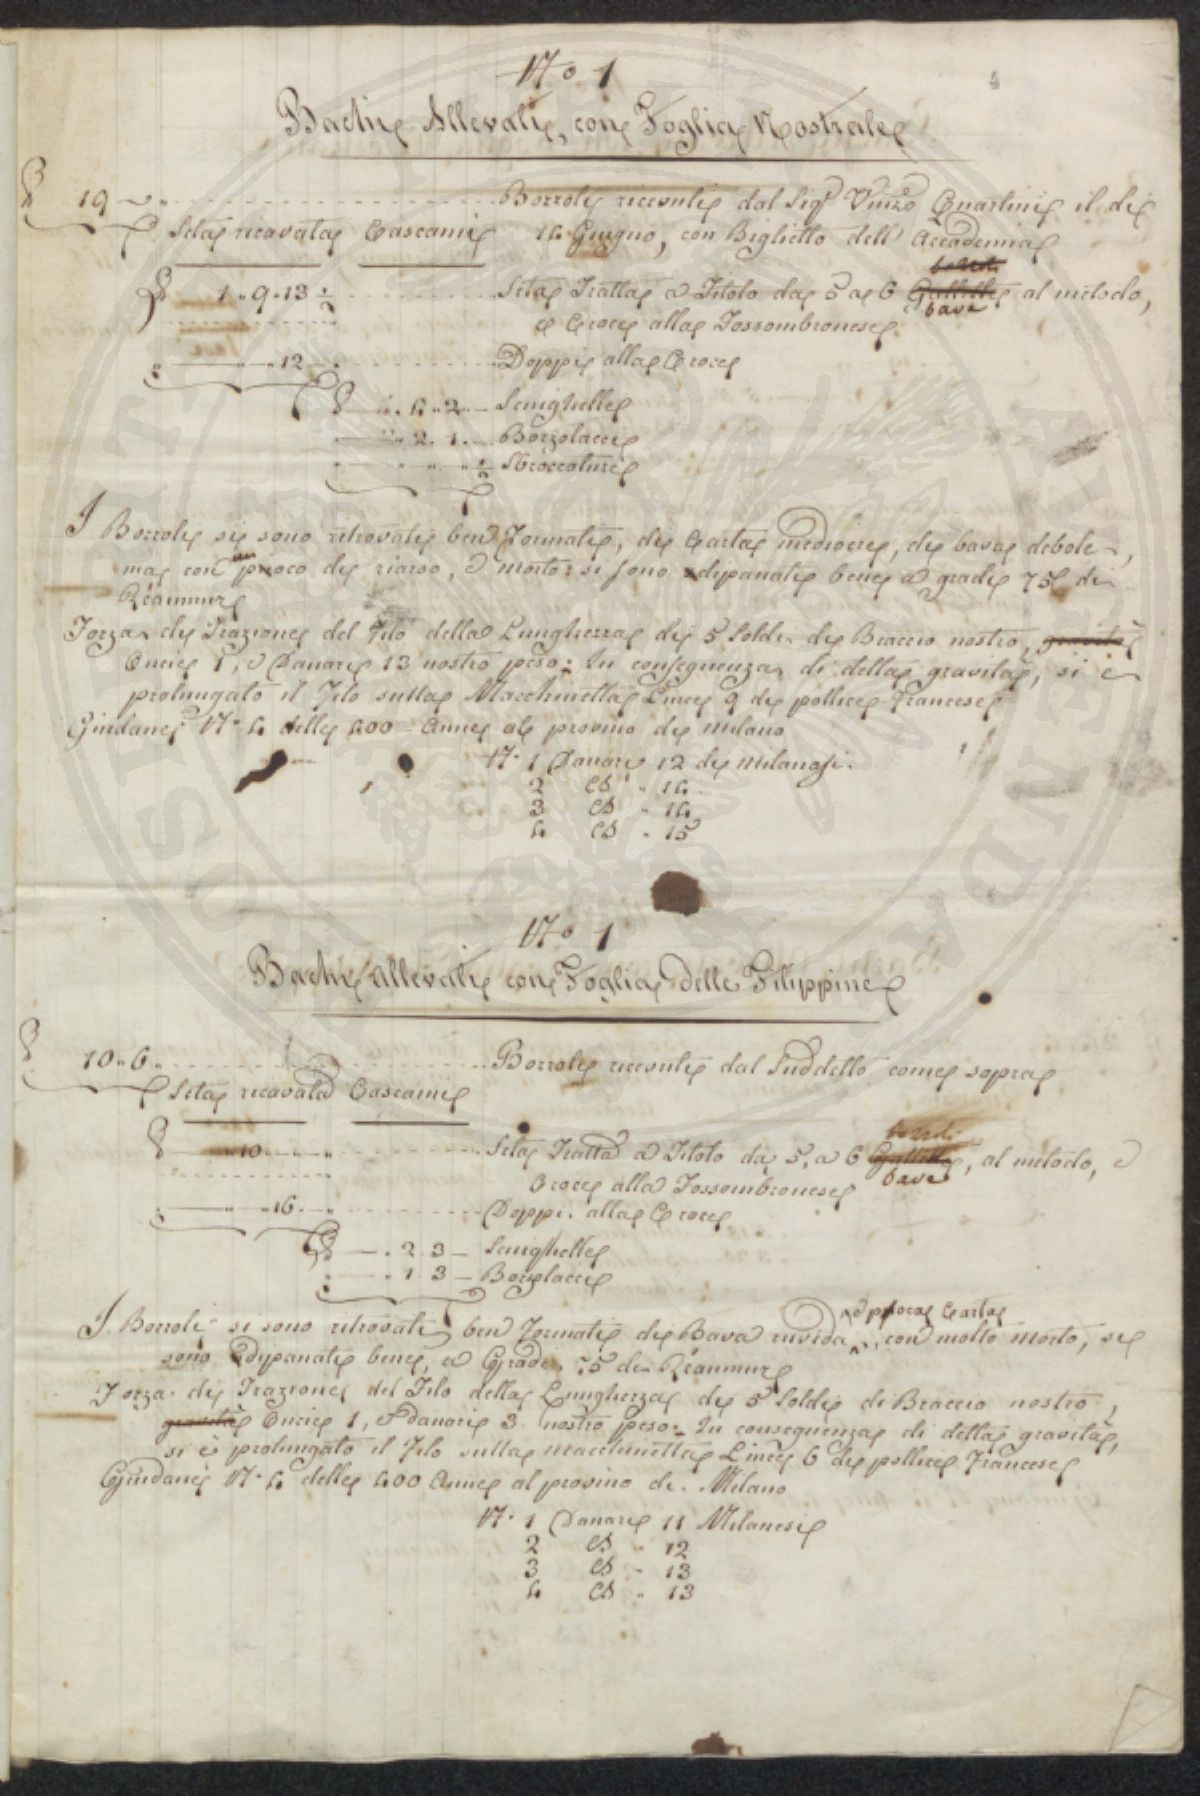 N.o 1
Bachi Allevati, con Foglia Nostrale
19 Bozzoli ricevuti dal Sigr Vinzo Guarlini il dì
Seta ricavata Cascami 14 Giugno, con Biglietto dell' Accademia
bozzoli
1.. 9.. 13 1/2 Seta Tratta a Titolo da 5 a 6 Gallette al metodo,
bava
e Croce alla Fossombronese
12 Doppi alla Croce
4.. 2.. Strighelle
2.. 1.. Bozzolacci
1/2 Sbroccature
I Bozzoli si sono ritrovati ben Formati, di Carta mediocre, di bava debole,
ma con un pioco di riarso, e morto: si sono dipanati bene a gradi 75 di
Réaumur
Forza di Trazione del Filo della Lunghezza di 5 Soldi di Braccio nostro, gravità
Oncie 1, e Danari 13 nostro peso: In conseguenza di detta gravità, si è
prolungato il Filo sulla Macchinetta Linee 9 di pollice Francese
Gindane N.o 4 delle 400 Anne al provino di Milano
N.o 1 Danari 12 di milanesi.
2 Cd .. 14
3 Cd .. 14
4 Cd .. 15
N.o 1
Bachi Allevati con Foglia delle Filippine
10.. 6 Bozzoli ricevuti dal Suddetto come sopra
Seta ricavata Cascami
bozzoli
10 Seta Tratta a Titolo da 5, a 6 Gallette, al metodo, e
bava
Croce alla Fossombronese
16 Doppi alla Croce
2.. 3 Strighelle
1.. 3 Bozzolacci
e poca Carta
I Bozzoli si sono ritrovati ben Formati di Bava ruvida, con molto morto, si
sono dipanati bene, a Gradi 75 di Réaumur
Forza di Trazione del Filo della Lunghezza di 5 Soldi di Braccio nostro,
gravità Oncie 1, e danari 3 nostro peso: In conseguenza di detta gravità,
si è prolungato il Filo sulla macchinetta Linee 6 di pollice Francese
Gindane N.o 4 delle 400 Anne al provino di Milano
N.o 1 Danari 11 Milanesi
2 Cd .. 12
3 Cd .. 13
4 Cd .. 13